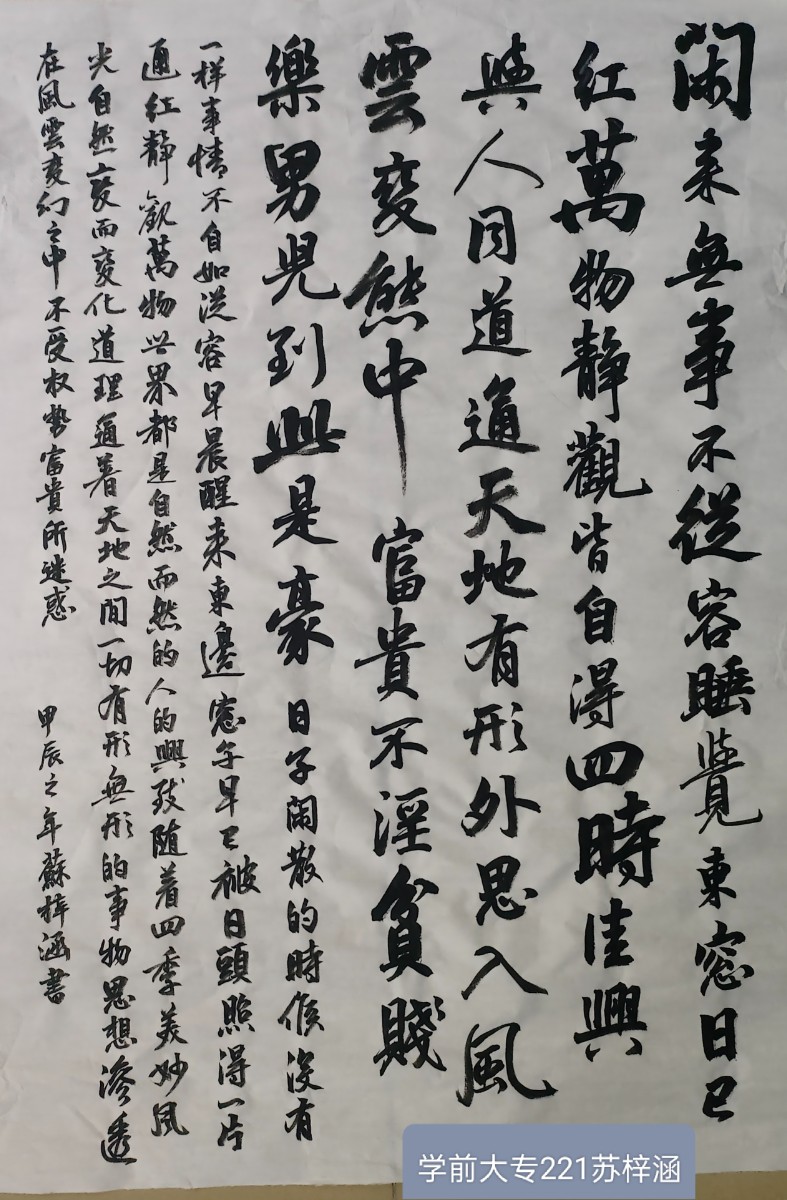 閑来無事不從容睡覺東窓日已
紅萬物靜觀皆自得四時佳興
與人同道通天地有形外思入風
雲變態中富貴不淫貧賤
樂男兒到此是豪日子閑散的時候沒有
一样事情不自如從容早晨醒来東邊窓子早已被日頭照得一片
通红靜觀萬物世界都是自然而然的人的興致随着四季美妙风
光自然变而变化道理通着天地之間一切有形無形的事物思想渗透
在風雲变幻之中不受权勢富貴所迷惑
甲辰之年蘇梓涵書
学前大专221苏梓涵